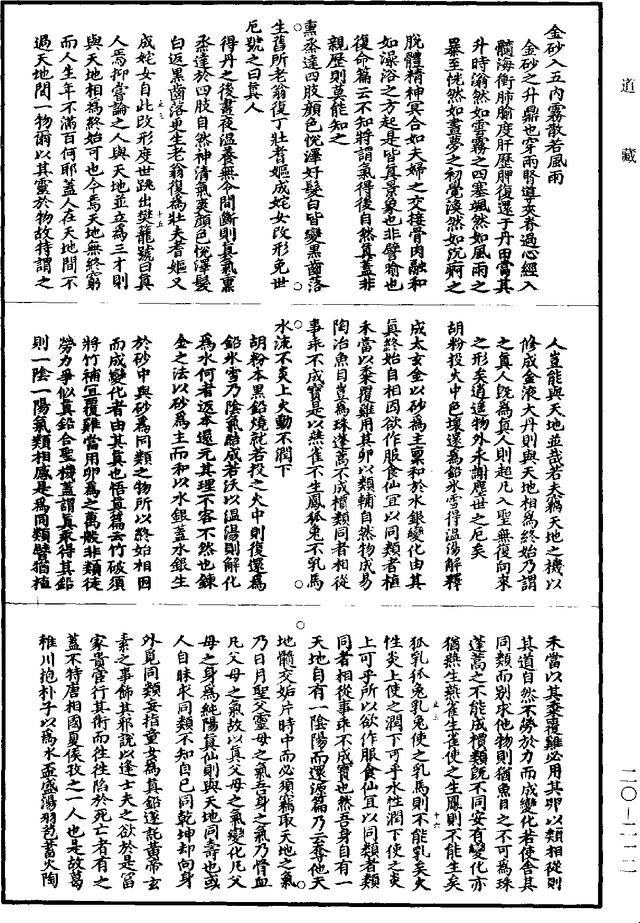 道藏
金砂入五內霧散若風雨
金砂之升鼎也穿兩腎導夾脊過心經入
髓海衝肺腧度肝歷脾復還于丹田當其
升時滃然如雲霧之四塞颯然如風雨之
暴至恍然如晝夢之初覺渙然如沉痾之
脫體精神冥合如夫婦之交接骨肉融和
如澡浴之方起是皆真景象也非譬喻也
復命篇云不知將謂氣得後自然真蓋非
親歷則莫能知之
熏蒸達四肢顏色悅澤好髮白皆變黑齒落
生舊所老翁復丁壯耆嫗成姹女改形免世
厄號之曰真人
得丹之後晝夜溫養無令間斷則真氣熏
蒸達於四肢自然神清氣爽顏色悅澤髮
白返黑齒落更生老翁復為壯夫耆嫗又
成姹女自此改形度世跳出樊籠號曰真
人焉抑嘗論之人與天地並立為三才則
與天地相為終始可也今焉天地無終窮
而人生年不滿百何耶蓋人在天地間不
過天地間一物爾以其靈於物故特謂之
人豈能與天地並哉若夫竊天地之機以
修成金液大丹則與天地相為終始乃謂
之真人既為真人則超凡入聖無復向來
之形矣逍遙物外永謝塵世之厄矣
胡粉投火中色壞還為鉛氷雪得溫湯解釋
成太玄金以砂為主稟和於水銀變化由其
真終始自相因欲作服食仙宜以同類者植
禾當以粟覆雞用其卵以類輔自然物成易
陶冶魚目豈為珠蓬蒿不成檟類同者相從
事乖不成寶是以燕雀不生鳳狐兔不乳馬
水流不炎上火動不潤下
胡粉本黑鉛燒就若投之火中則復還為
鉛氷雪乃陰氣結成若沃以溫湯則解化
為水何者返本還元其理不容不然也鍊
金之法以砂為主而和以水銀蓋水銀生
於砂中與砂為同類之物所以終始相因
而成變化者由其真也悟真篇云竹破須
將竹補宜覆雞當用卵為之萬般非類徒
勞力爭似真鉛合聖機蓋謂真汞得其鉛
則一陰一陽氣類相感是為同類譬猶植
禾當以其粟覆雞必用其卵以類相從則
其道自然不勞於力而成變化若使舍其
同類而別求他物則猶魚目之不可為珠
蓬蒿之不能成檟類既不同安有變化亦
猶燕生燕雀生雀使之生鳳則不能生矣
狐乳狐兔乳兔使之乳馬則不能乳矣火
性炎上使之潤下可乎水性潤下使之炎
上可乎所以欲作服食仙宜以同類者類
同者相從事乖不成寶也然吾身自有一
天地自有一陰陽而還源篇乃云奪他天
地髓交姤片時中而必須竊取天地之氣
乃日月聖父靈母之氣吾身之氣乃骨血
凡父母之氣故以真父母之氣變化凡父
母之身為純陽真仙則與天地同壽也或
人自昧求同類不知自己同乾坤却向身
外覓同類妄指童女為真鉛遂託黃帝玄
素之事飾其邪說以逢士夫之欲於是富
家貴官行其術而往往陷於死亡者有之
蓋不特唐相國夏侯孜之一人也是故葛
稚川抱朴子以為水盃盛湯羽苞蓄火陶
五三
十五
五三
十六
二〇－一一二